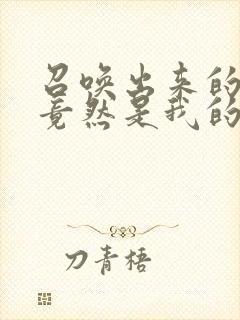 召唤出来的
竟然是我的
刀青梧